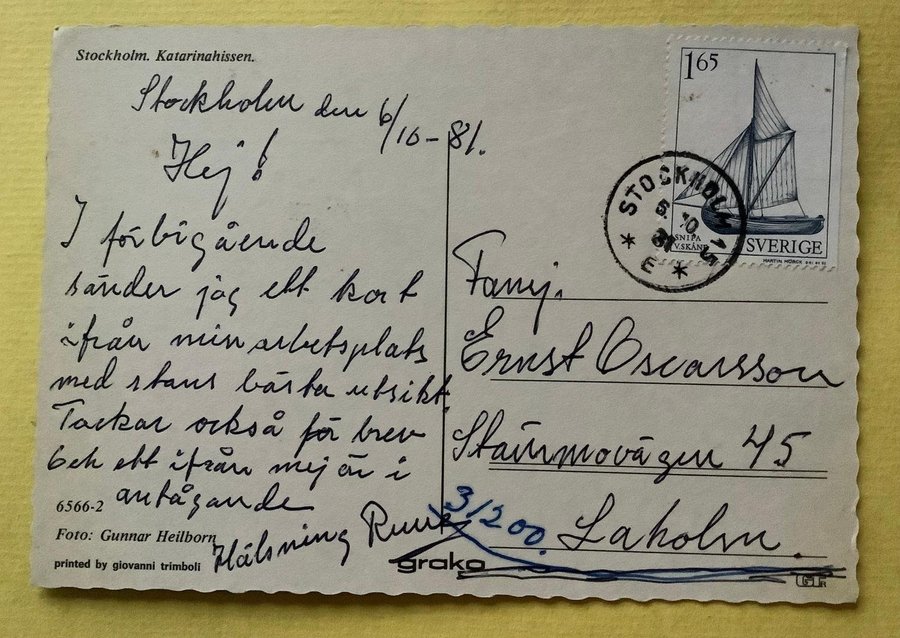 Stockholm. Katarinahissen.
Stockholm den 6/10-81.
Hej!
I förbigående
sänder jag ett kort
ifrån min arbetsplats
med stans bästa utsikt.
Tackar också för brev
och ett ifrån mej är i
antågande
Hälsning Rune
6566-2
Foto: Gunnar Heilborn
printed by giovanni trimboli
grako
1 65
SNIPA
V.SKÅNE
SVERIGE
STOCKHOLM 15
6.10
81
* E *
Famj.
Ernst Oscarsson
45
31200.
Laholm.